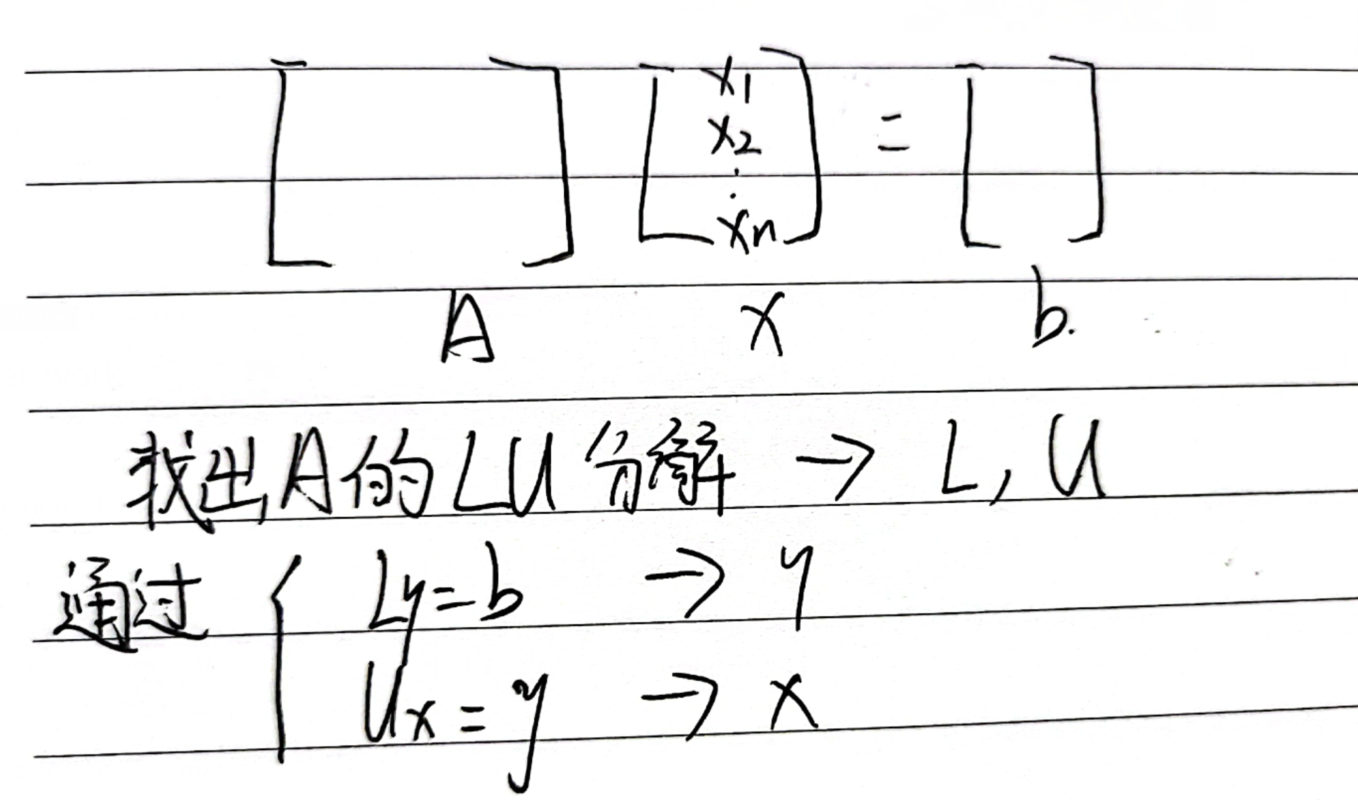 [ ] [ x1 x2 : xn ] = [ ]
A x b.
找出A的LU分解 → L, U
通过 { Ly=b → y
Ux=y → x